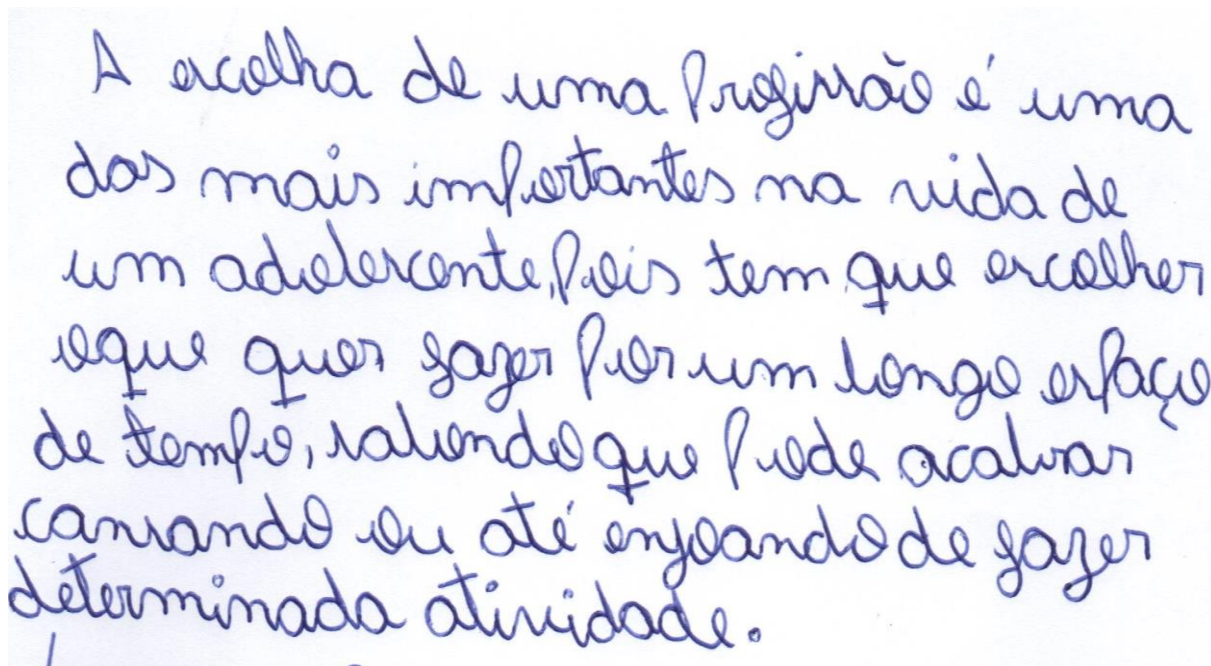 A escolha de uma profissão é uma
das mais importantes na vida de
um adolescente, pois tem que escolher
oque quer fazer por um longo espaço
de tempo, sabendo que pode acabar
cansando ou até enjoando de fazer
determinada atividade.